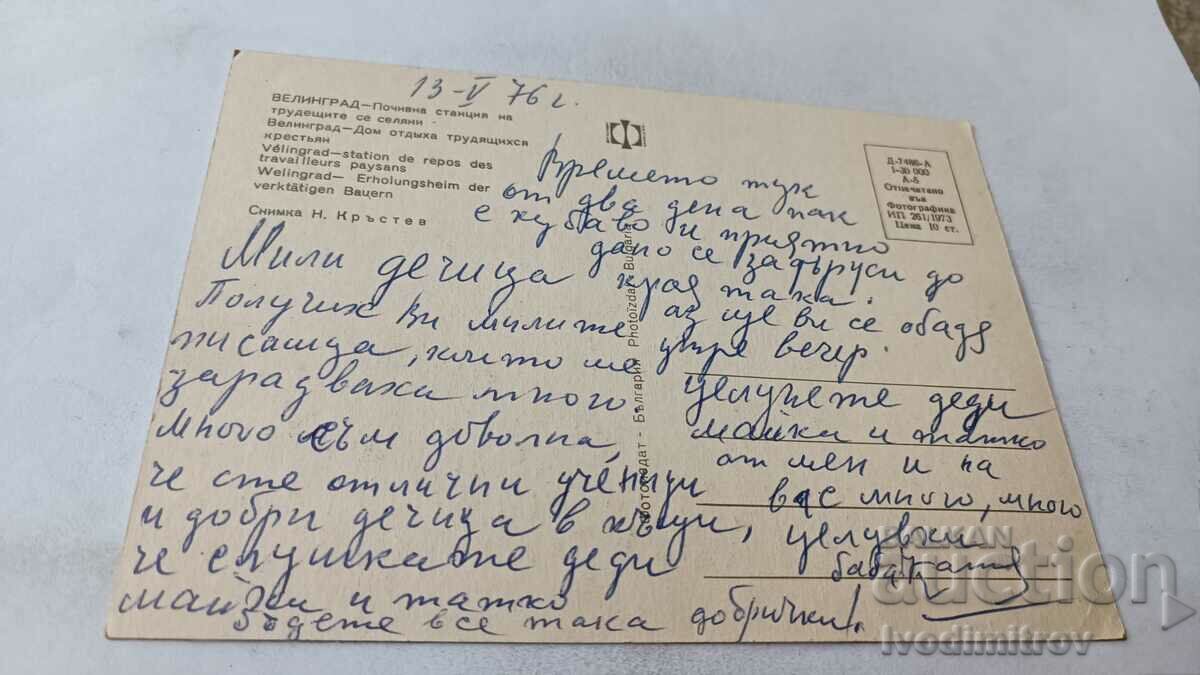 13-V 76 г.
ВЕЛИНГРАД—Почивна станция на
трудещите се селяни
Велинград—Дом отдыха трудящихся
крестьян
Vélingrad—station de repos des
travailleurs paysans
Welingrad— Erholungsheim der
verktätigen Bauern
Снимка Н. Кръстев
Д-7486-А
I-30 000
А-5
Отпечатано
във
Фотографика
ИП 261/1973
Цена 10 ст.
Фотоиздат - България Photoizdat - Bulgaria
Мили дечица
Получих Ви милите
писамца, които ме
зарадваха много.
Много съм доволна,
че сте отлични ученици
и добри дечица в къщи,
че слушкате деди
майчи и татко
Бъдете все така добрички!
Времето тук
от два дена пак
е хубаво и приятно
дано се задъруси до
края така.
Аз ще ви се обадя
утре вечер.
Целунете деди
майка и татко
от мен и на
вас много, много
целувки
баба
BALKAN
auction
Ivodimitrov